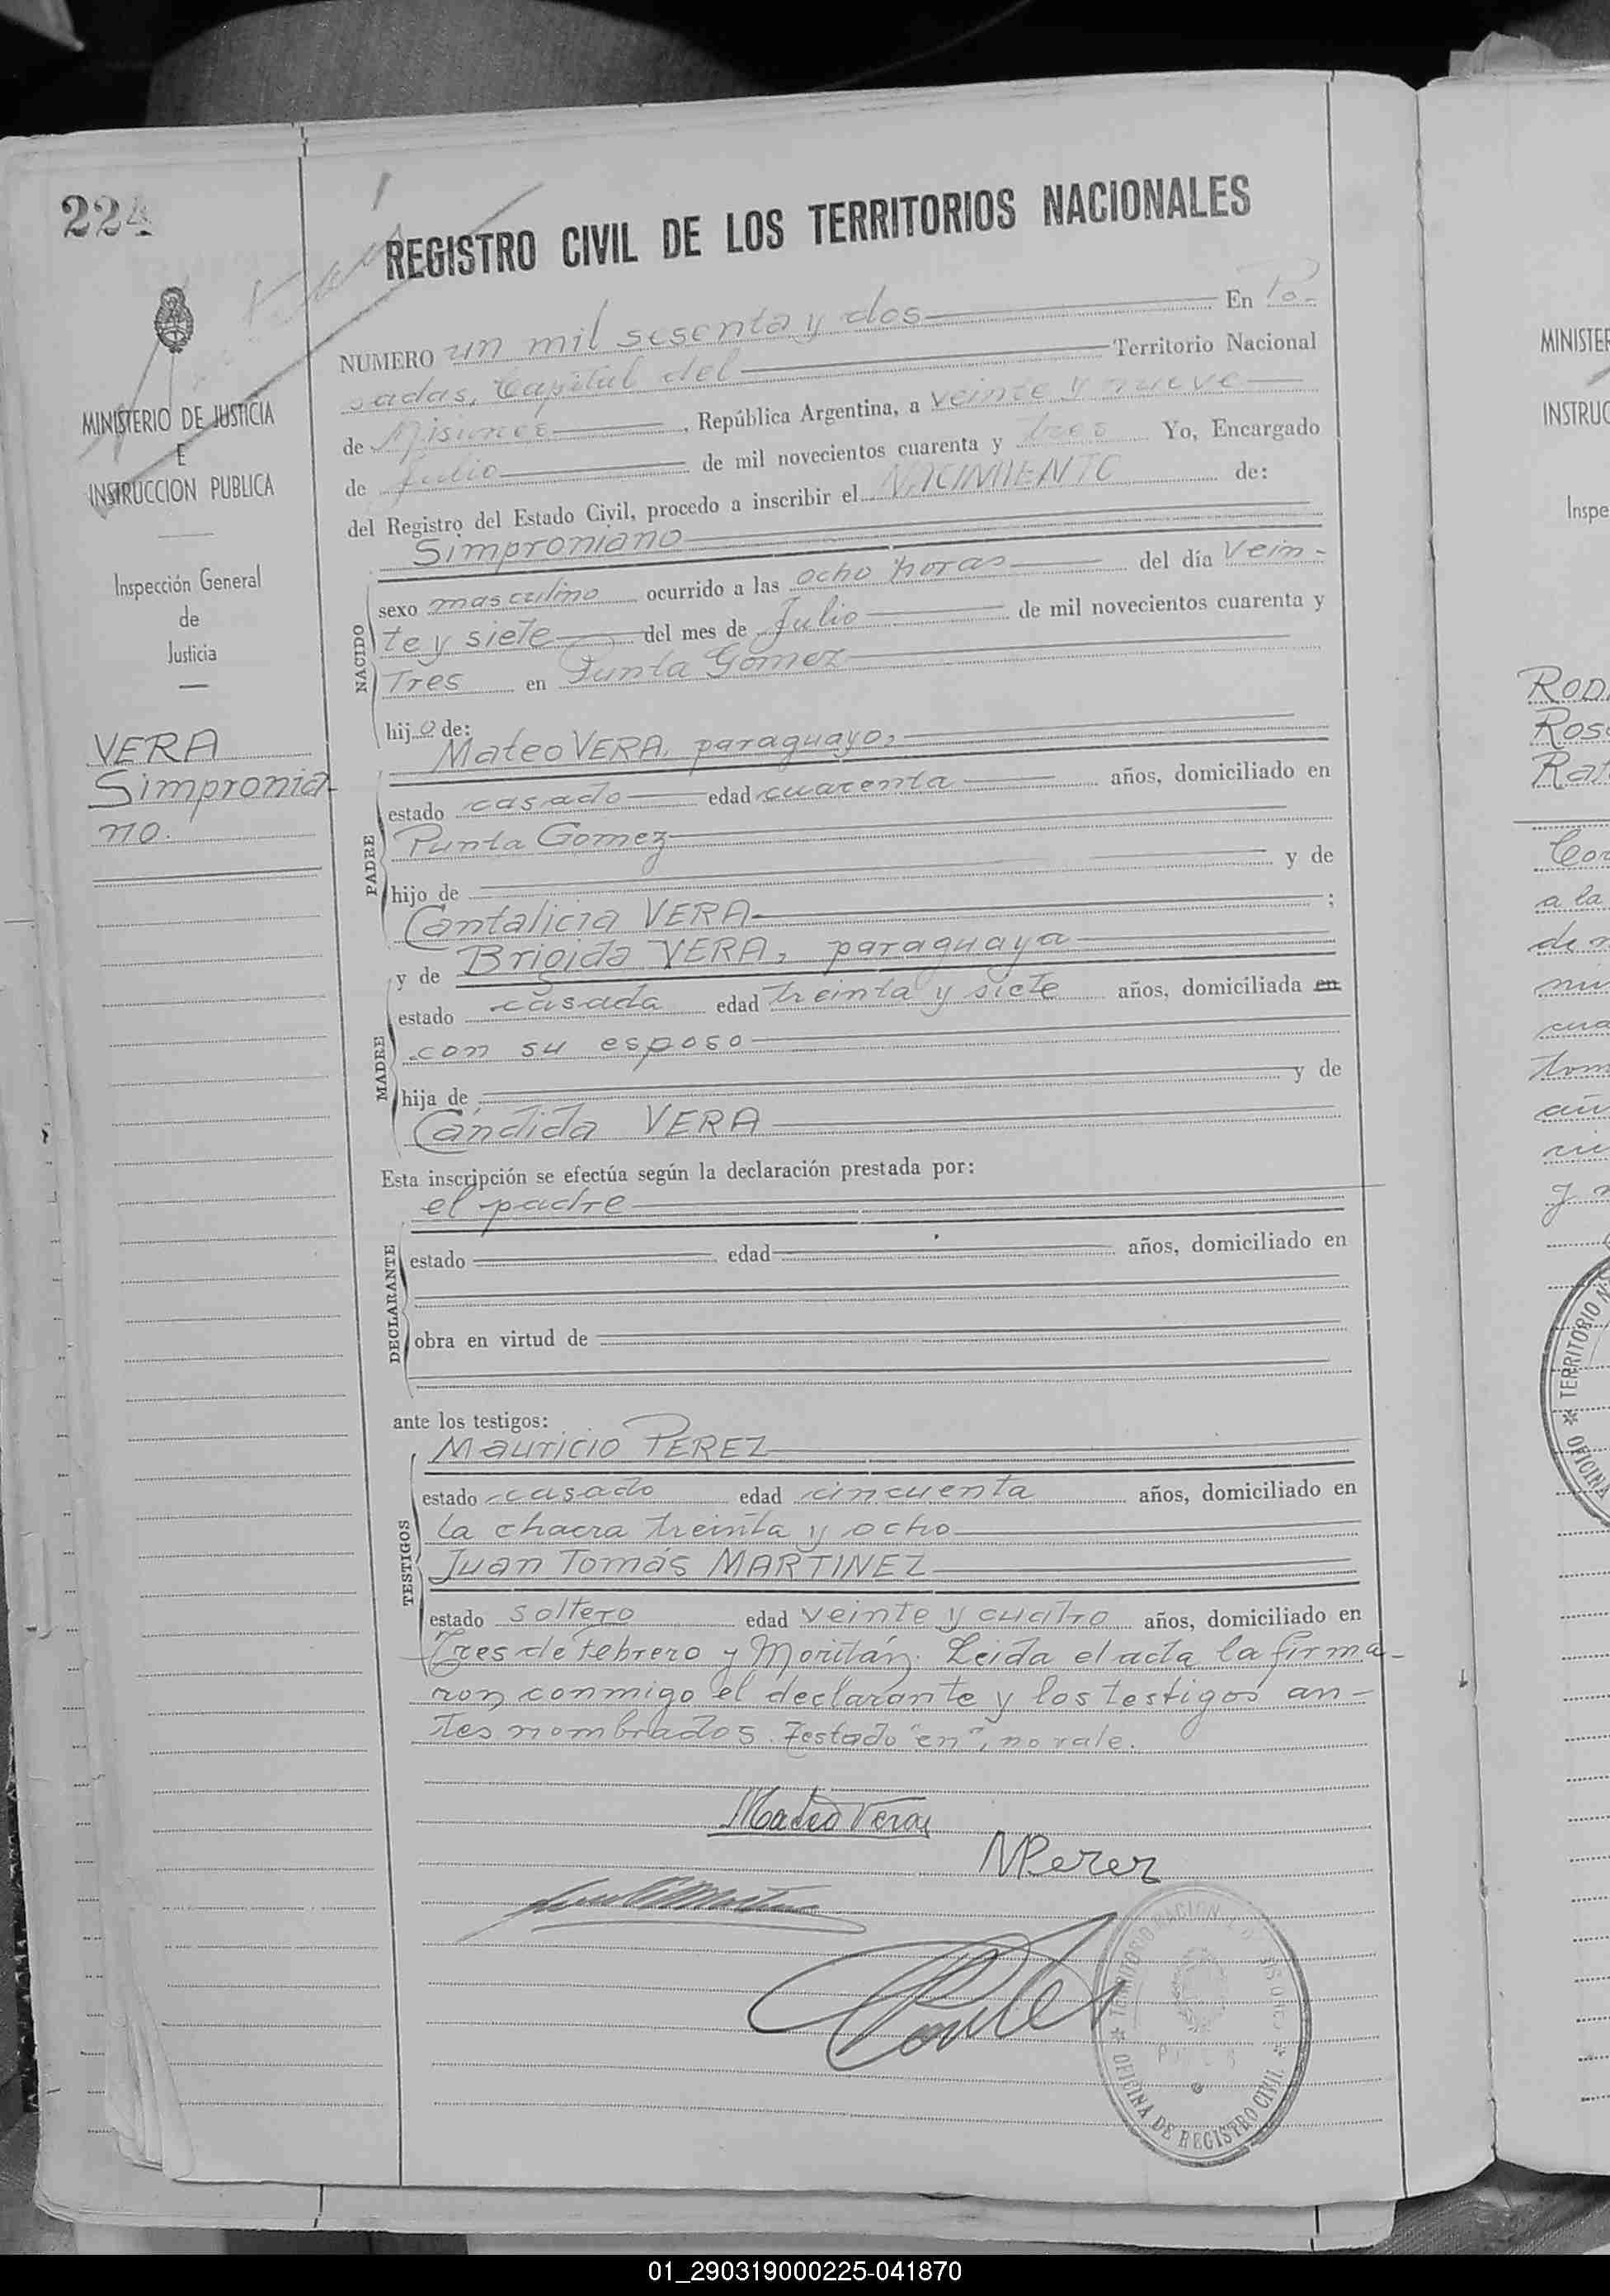 224
REGISTRO CIVIL DE LOS TERRITORIOS NACIONALES
MINISTERIO DE JUSTICIA
E
INSTRUCCION PUBLICA
Inspección General
de
Justicia
VERA
Simpronia-
no.
NUMERO un mil sesenta y dos En Po-
sadas, Capital del Territorio Nacional
de Misiones, República Argentina, a veinte y nueve
de Julio de mil novecientos cuarenta y tres Yo, Encargado
del Registro del Estado Civil, procedo a inscribir el NACIMIENTO de:
Simproniano
NACIDO
sexo masculino ocurrido a las ocho horas del día vein-
te y siete del mes de Julio de mil novecientos cuarenta y
Tres en Punta Gomez
hijo de:
Mateo VERA, paraguayo,
PADRE
estado casado edad cuarenta años, domiciliado en
Punta Gomez
hijo de y de
Cantalicia VERA ;
y de Brigida VERA, paraguaya
MADRE
estado casada edad treinta y siete años, domiciliada en
con su esposo
hija de y de
Cándida VERA
Esta inscripción se efectúa según la declaración prestada por:
el padre
DECLARANTE
estado edad años, domiciliado en
obra en virtud de
ante los testigos:
Mauricio PEREZ
TESTIGOS
estado casado edad cincuenta años, domiciliado en
la chacra treinta y ocho
Juan Tomás MARTINEZ
estado soltero edad veinte y cuatro años, domiciliado en
Tres de Febrero y Moritán. Leida el acta la firma-
ron conmigo el declarante y los testigos an-
tes nombrados. Testado "en", no vale.
Mateo Vera
MPerez
OFICINA DE REGISTRO CIVIL
MINISTER
INSTRUC
Inspe
ROD
Ros
Rat
a la
TERRITORIO N
OFICINA
01_290319000225-041870